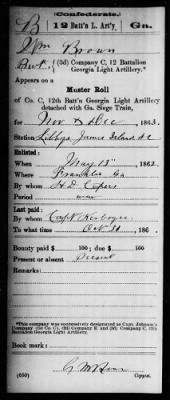 (Confederate.)
B 12 Batt'n L. Art'y, Ga.
Wm Brown
Pvt., (3d) Company C, 12 Battalion
Georgia Light Artillery.*
Appears on a
Muster Roll
of Co. C, 12th Batt'n Georgia Light Artillery
detached with Ga. Siege Train,
for Nov & Dec, 1863.
Station James Island S C
Enlisted:
When May 13", 1862.
Where Franklin Ga
By whom H. D. Capers
Period war
Last paid:
By whom Capt
To what time Oct 31, 186 .
Bounty paid $ 100; due $ 100
Present or absent Present
Remarks:
*This company was successively designated as Capt. Johnson's
Book mark:
(650) Copyist.